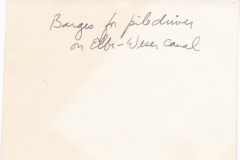 Barges for piledriver
on Elbe-Weser canal